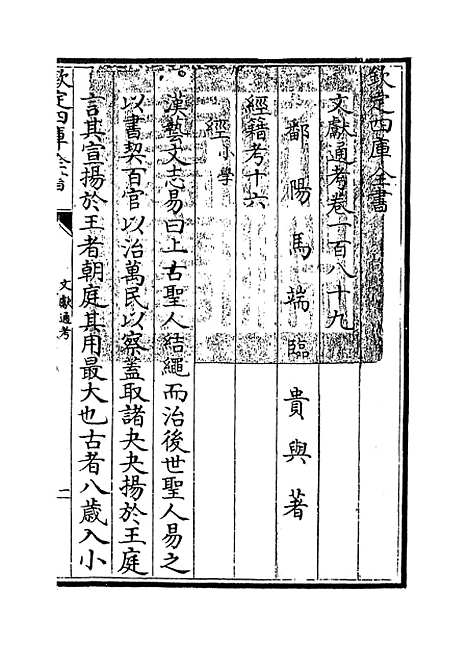 欽定四庫全書
文獻通考卷一百八十九
鄱陽馬端臨貴與著
經籍考十六
經小學
漢藝文志易曰上古聖人結繩而治後世聖人易之
以書契百官以治萬民以察蓋取諸夬夬揚於王庭
言其宣揚於王者朝庭其用最大也古者八歲入小
欽定四庫全書
文獻通考